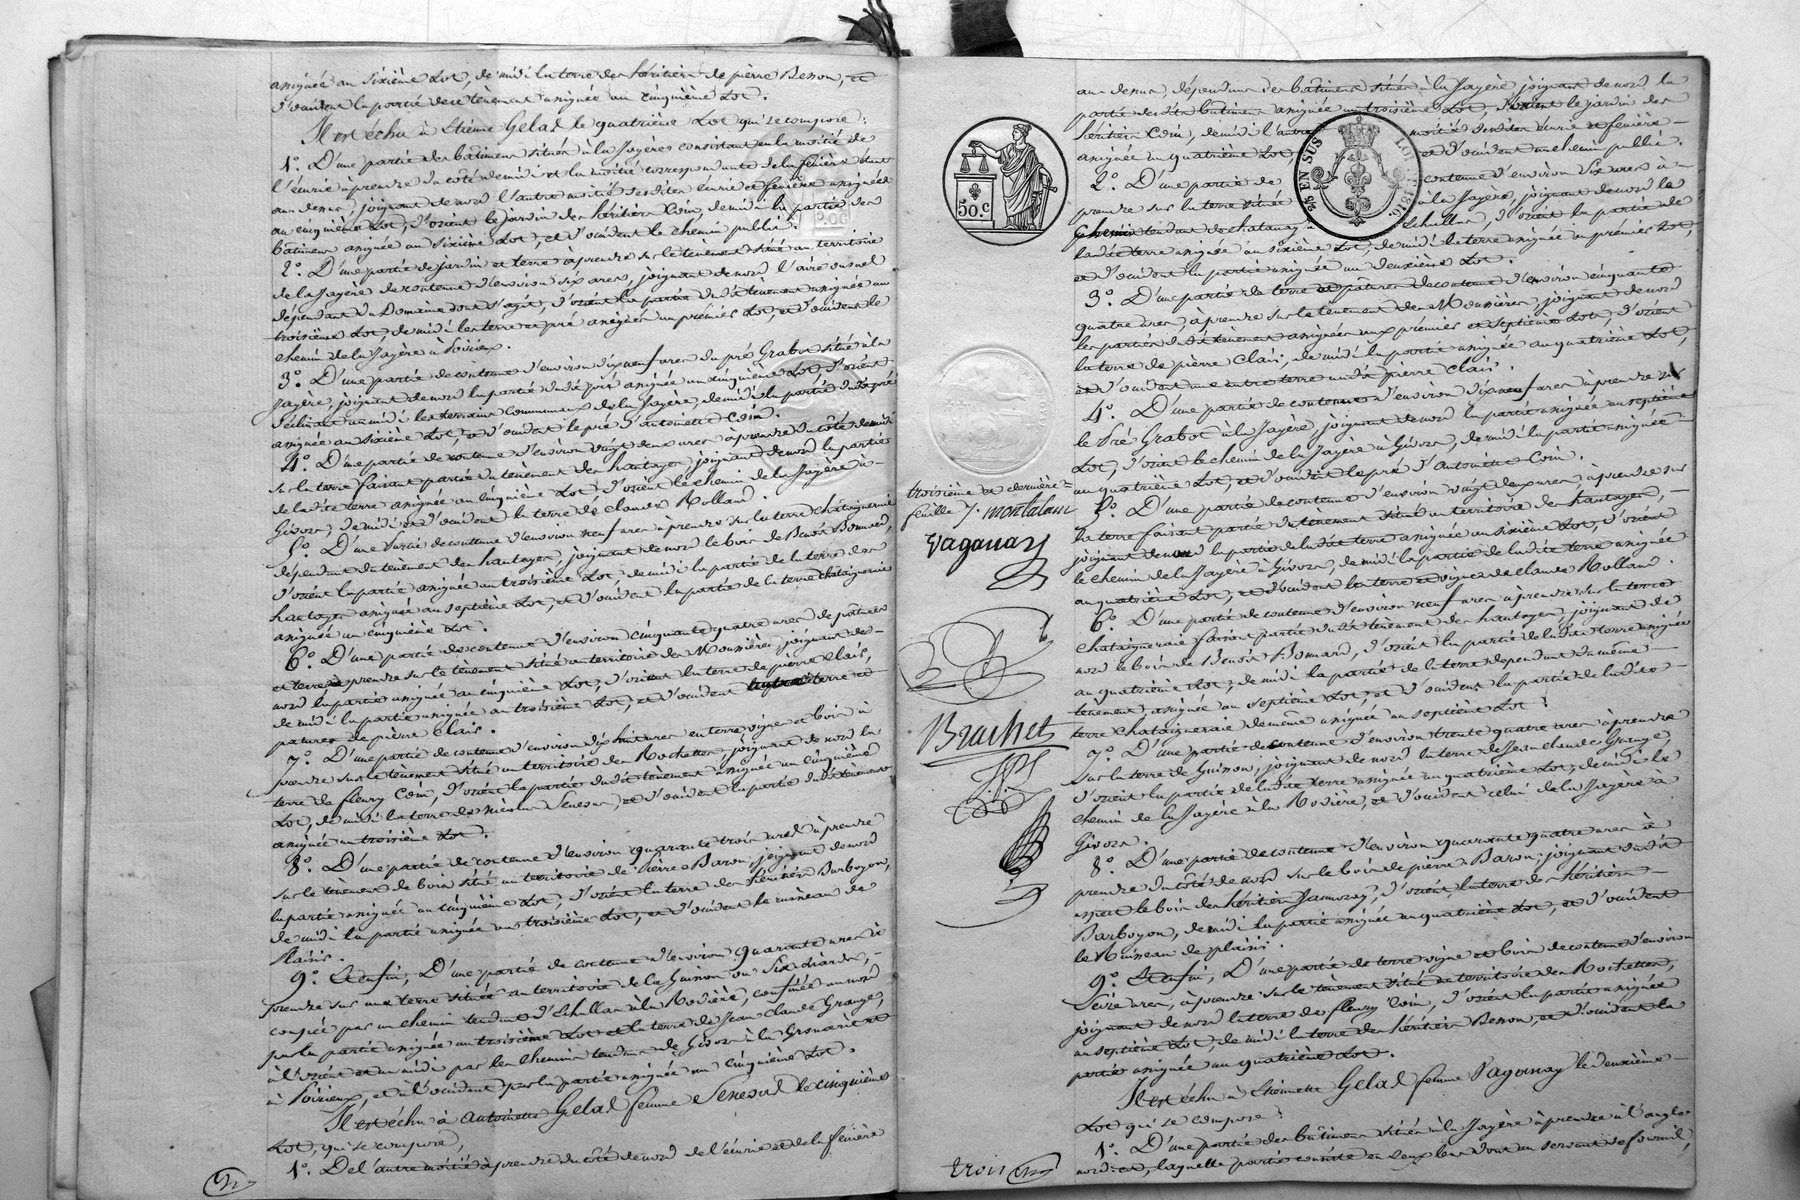 assignée au sixième Lot, de midi la terre des héritiers de pierre Besson, et
d'occident la partie de ce tènement assignée au cinquième Lot.
Il est échu à Etienne Gelas le quatrième Lot qui se compose:
1°. D'une partie des bâtimens situés à la Jayère consistant en la moitié de
l'écurie à prendre du coté de midi et la moitié correspondante de la fenière étant
au dessus, joignant de nord l'autre moitié desdites écurie et fenière assignées
au cinquième Lot, d'orient le jardin des héritiers Coin, de midi la partie des
bâtimens assignée au sixième Lot, et d'occident le chemin public.
2°. D'une partie de jardin et terre à prendre sur le tènement situé au territoire
de la Jayère de contenue d'environ six ares, joignant de nord l'aire ou suel
dépendant du Domaine dont s'agit, d'orient la partie dudit tènement assignée au
troisième Lot, de midi les terre et pré assignés au premier Lot, et d'occident le
chemin de la Jayère à Poirieux.
3°. D'une partie de contenue d'environ dix neuf ares du pré Grabot situé à la
Jayère, joignant de nord la partie dudit pré assignée au cinquième Lot, d'orient
déclinant au midi les terreaux communaux de la Jayère, de midi la partie dudit pré
assignée au sixième Lot, et d'occident le pré d'antoinette Coin.
4°. D'une partie de contenue d'environ vingt deux ares à prendre du côté de midi
sur la terre faisant partie du tènement des hautages, joignant de nord la partie
de ladite terre assignée au cinquième Lot, d'orient le chemin de la Jayère à
Givors, de midi et d'occident la terre de claude Rolland.
5°. D'une Partie de contenue d'environ neuf ares à prendre sur la terre chataigneraie
dépendant du tènement des hautages, joignant de nord le bois de Benoît Bonnard,
d'orient la partie assignée au troisième Lot, de midi la partie de la terre des
hautages assignée au septième Lot, et d'occident la partie de la terre chataigneraie
assignée au cinquième Lot.
6°. D'une partie de contenue d'environ cinquante quatre ares de patures
et terre à prendre sur le tènement situé au territoire des Mousières, joignant de
nord la partie assignée au cinquième Lot, d'orient la terre de pierre Clair,
de midi la partie assignée au troisième Lot, et d'occident terre et
patures de pierre Clair.
7°. D'une partie de contenue d'environ dix huit ares en terre, vigne et bois à
prendre sur le tènement situé au territoire des Rochettes, joignant de nord la
terre de fleury Coin, d'orient la partie dudit tènement assignée au cinquième
Lot, de midi la terre de nicolas, et d'occident la partie dudit tènement
assignée au troisième Lot.
8°. D'une partie de contenue d'environ quarante trois ares à prendre
sur le tènement de bois situé au territoire de Pierre Baron, joignant de nord
la partie assignée au cinquième Lot, d'orient la terre des héritiers Barboyon,
de midi la partie assignée au troisième Lot, et d'occident le ruisseau de
plaisis.
9°. Et enfin, D'une partie de contenue d'environ quarante ares à
prendre sur une terre située au territoire de la Guison ou Six diards,
coupée par un chemin tendant d'Echallas à la Rodière, confinée au nord
par la partie assignée au troisième Lot et la terre de Jean Claude Grange,
à l'orient et au midi par les chemins tendans de Givors à la Gronarie et
à Poirieux, et à l'occident par la partie assignée au cinquième Lot.
Il est échu à antoinette Gelas femme Senesvel le cinquième
Lot, qui se compose,
1°. De l'autre moitié à prendre du côté de nord de l'écurie et de la fenière
au dessus, dépendans des bâtimens situés à la Jayère, joignant de nord la
partie desdits bâtimens assignée au troisième Lot, d'orient le jardin des
héritiers Coin, de midi l'autre moitié desdites écurie et fenière
assignée au quatrième Lot, et d'occident un chemin public.
2°. D'une partie de contenue d'environ six ares à
prendre sur la terre située à la Jayère, joignant de nord le
chemin tendant de chatanay à Echallas, d'orient la partie de
ladite terre assignée au sixième Lot, de midi la terre assignée au premier Lot,
et d'occident la partie assignée au deuxième Lot.
3°. D'une partie de terre et patures de contenue d'environ cinquante
quatre ares, à prendre sur le tènement des Mousières, joignant de nord
les parties dudit tènement assignées aux premier et septième Lots, d'orient
la terre de pierre Clair, de midi la partie assignée au quatrième Lot,
et d'occident une autre terre audit pierre Clair.
4°. D'une partie de contenue d'environ dix neuf ares à prendre sur
le Pré Grabot à la Jayère, joignant de nord la partie assignée au septième
Lot, d'orient le chemin de la Jayère à Givors, de midi la partie assignée
au quatrième Lot, et d'occident le pré d'antoinette Coin.
5°. D'une partie de contenue d'environ vingt deux ares, à prendre sur
la terre faisant partie du tènement situé au territoire des hautages,
joignant de nord la partie de ladite terre assignée au sixième Lot, d'orient
le chemin de la Jayère à Givors, de midi la partie de ladite terre assignée
au quatrième Lot, et d'occident les terre et vigne de claude Rolland.
6°. D'une partie de contenue d'environ neuf ares à prendre sur la terre
chataigneraie faisant partie dudit tènement des hautages, joignant de
nord le bois de Benoît Bonnard, d'orient la partie de ladite terre assignée
au quatrième Lot, de midi la partie de la terre dépendant du même
tènement assignée au septième Lot, et d'occident la partie de ladite
terre chataigneraie de même assignée au septième Lot.
7°. D'une partie de contenue d'environ trente quatre ares à prendre
sur la terre de Guison, joignant de nord la terre de Jean claude Grange,
d'orient la partie de ladite terre assignée au quatrième Lot, de midi le
chemin de la Jayère à la Rodière, et d'occident celui de la Jayère à
Givors.
8°. D'une partie de contenue d'environ quarante quatre ares à
prendre du côté de nord sur le bois de pierre Baron, joignant dudit
aspect le bois des héritiers Jamoray, d'orient la terre des héritiers
Barboyon, de midi la partie assignée au quatrième Lot, et d'occident
le Ruisseau de plaisis.
9°. Et enfin, D'une partie de terre vigne et bois de contenue d'environ
Seize ares, à prendre sur le tènement situé au territoire des Rochettes,
joignant de nord la terre de fleury Coin, d'orient la partie assignée
au septième Lot, de midi la terre des héritiers Besson, et d'occident la
partie assignée au quatrième Lot.
Il est échu à Etiennette Gelas femme Vaganay le deuxième
Lot qui se compose:
1°. D'une partie des bâtimens situés à la Jayère à prendre à l'angle
nord est, laquelle partie consiste en deux bas dont un servant de fournil,
50.C
25 EN SUS
LOI 1816.
troisième et dernière
feuille J. montaland
Vaganay
Brachet
trois